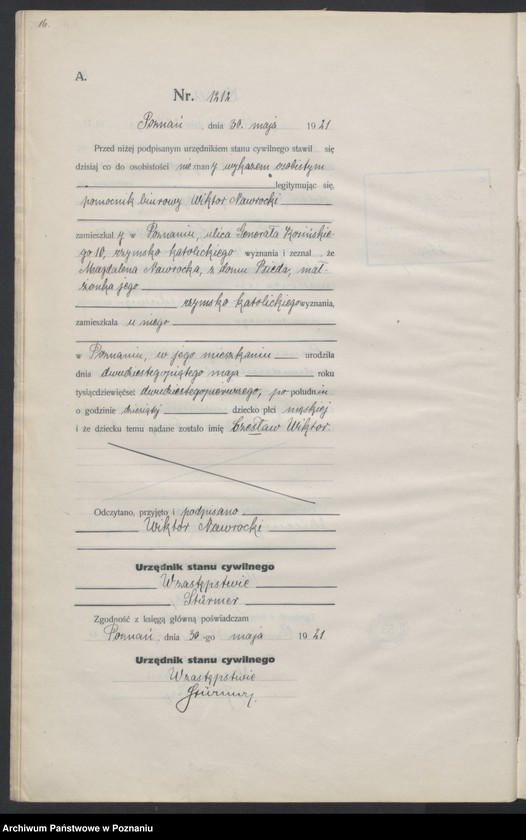 16.
A.
Nr. 1212
Poznań, dnia 30. maja 1921
Przed niżej podpisanym urzędnikiem stanu cywilnego stawił się
dzisiaj co do osobistości nieznany wykazem osobistym
legitymując się,
pomocnik biurowy Wiktor Nawrocki
zamieszkały w Poznaniu, ulica Generała Kosińskie-
go 10, rzymsko katolickiego wyznania i zeznał, że
Magdalena Nawrocka, z domu mał-
żonka jego
rzymsko katolickiego wyznania,
zamieszkała u niego
w Poznaniu, w jego mieszkaniu urodziła
dnia dwudziestegopiątego maja roku
tysiącdziewięćset dwudziestegopierwszego, po południu
o godzinie dziesiątej dziecko płci męskiej
i że dziecku temu nadane zostało imię Czesław Wiktor.
Odczytano, przyjęto i podpisano
Wiktor Nawrocki
Urzędnik stanu cywilnego
W zastępstwie
Stürmer
Zgodność z księgą główną poświadczam
Poznań, dnia 30-go maja 1921
Urzędnik stanu cywilnego
W zastępstwie
Stürmer
Archiwum Państwowe w Poznaniu